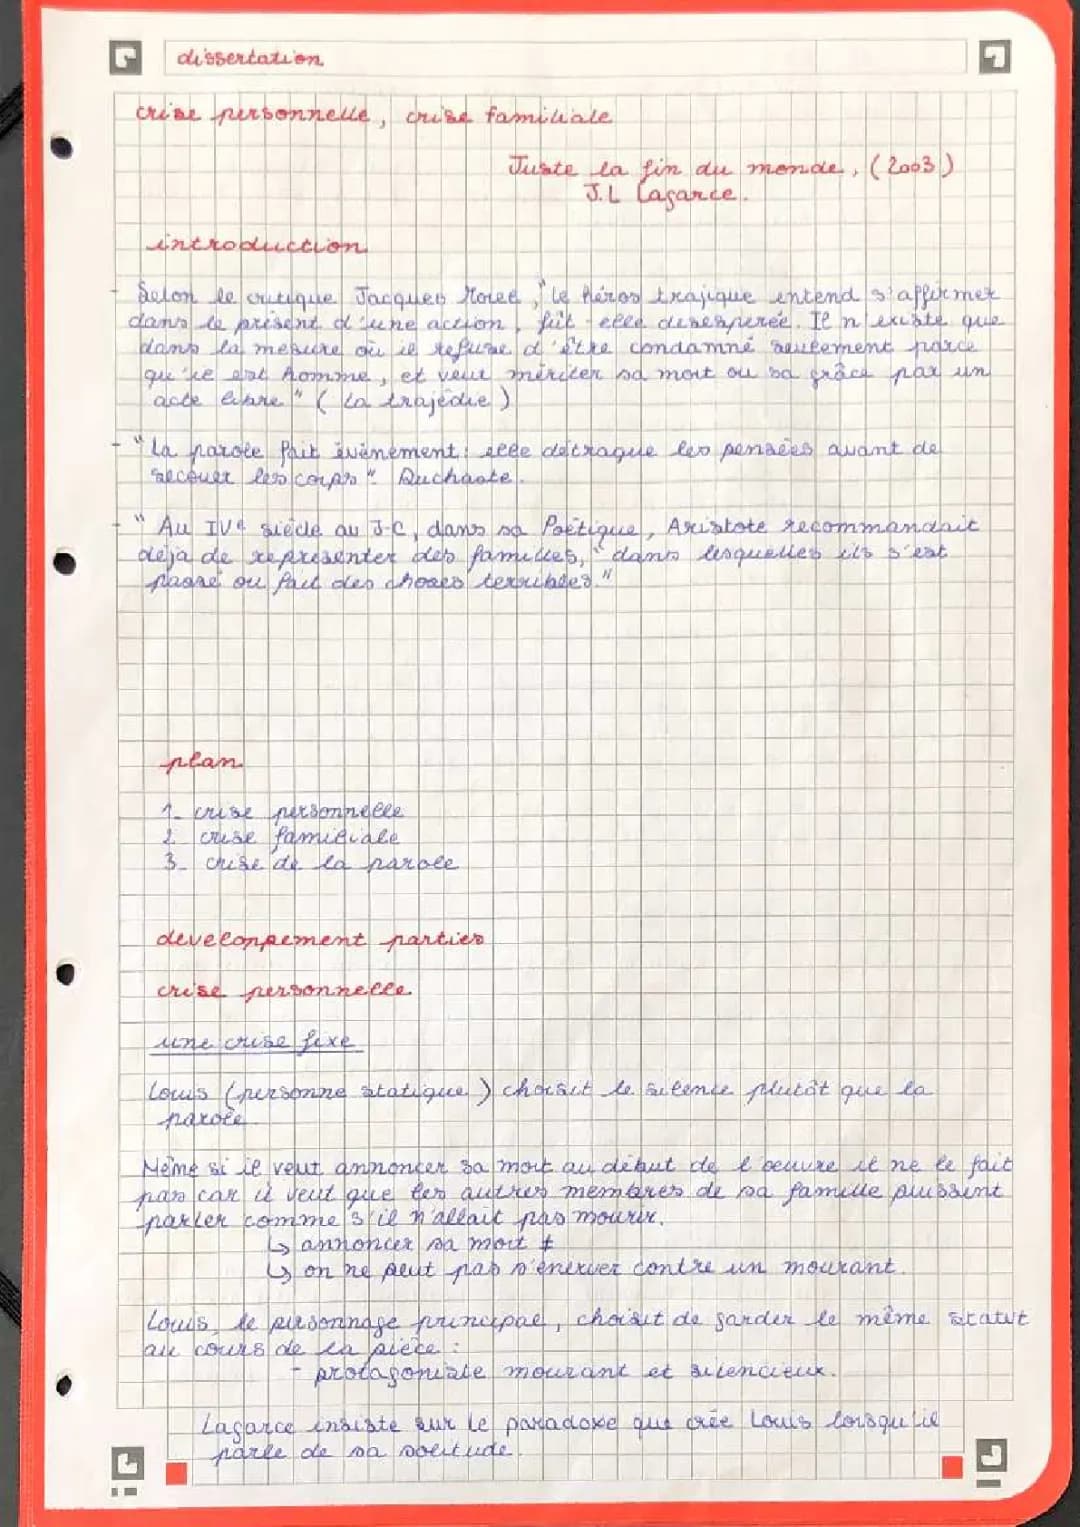 dissertation
crise personnelle, crise familiale
Juste la fin du monde, (2003)
J.L Lagarce.
introduction
- Selon le critique Jacques Morel, "le héros trajique entend s'affirmer
dans le présent d'une action, fût-elle désespérée. Il n'existe que
dans la mesure où il refuse d'être condamné seulement parce
qu'il est homme, et veut mériter sa mort ou sa grâce par un
acte libre" (La trajédie)
- "La parole fait évènement: elle détraque les pensées avant de
secouer les corps". Ruchaste.
- "Au IVe siècle av J-C, dans sa Poétique, Aristote recommandait
déjà de représenter des familles, "dans lesquelles ils s'est
passé ou fait des choses terribles."
plan
1- crise personnelle
2 crise familiale
3- crise de la parole
develonpement parties
crise personnelle
une crise fixe
Louis (personne statique) choisit le silence plutôt que la
parole.
Même si il veut annoncer sa mort au début de l'oeuvre il ne le fait
pas car il veut que les autres membres de sa famille puissent
parler comme s'il n'allait pas mourir.
↳ annoncer sa mort ‡
↳ on ne peut pas s'énerver contre un mourant.
Louis, le personnage principal, choisit de garder le même statut
au cours de la pièce :
- protagoniste mourant et silencieux.
Lagarce insiste sur le paradoxe que crée Louis lorsqu'il
parle de sa solitude.